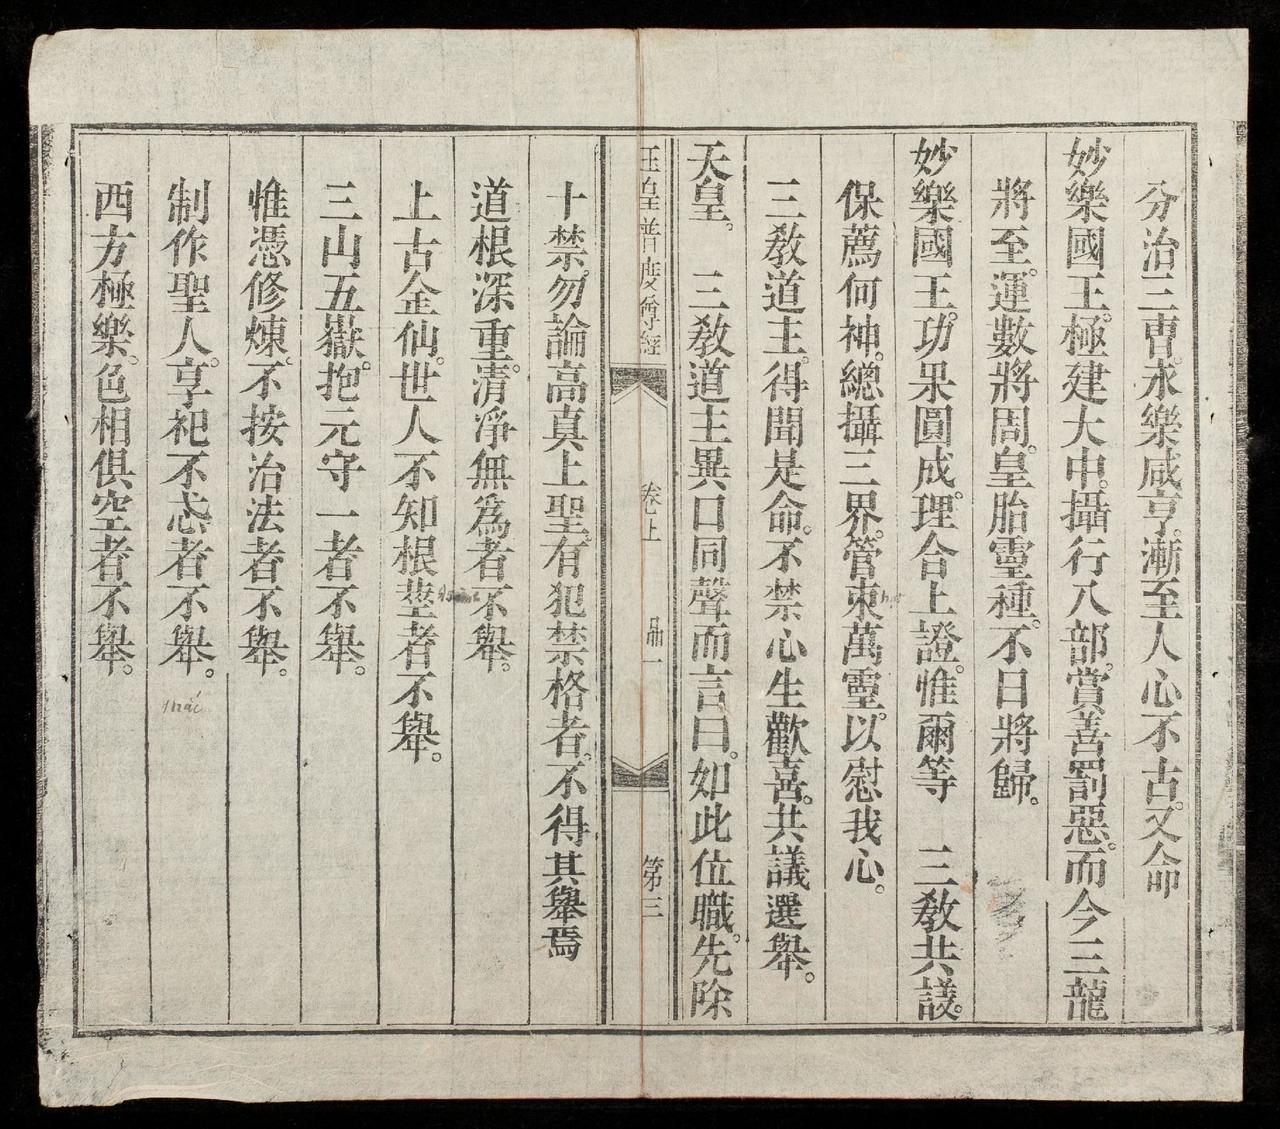 分治三曹。永樂咸亨。漸至人心不古。又命
妙樂國王。極建大中。攝行八部。賞善罰惡。而今三龍
將至。運數將周。皇胎靈種。不日將歸。
妙樂國王。功果圓成。理合上證。惟爾等　三教共議。
保薦何神。總攝三界。管束萬靈。以慰我心。
三教道主。得聞是命。不禁心生歡喜。共議選舉。
天皇。　三教道主異口同聲而言曰。如此位職。先除
玉皇普度尊經　卷上　品一　第三
十禁。勿論高真上聖。有犯禁格者。不得其舉焉
道根深重。清淨無爲者不舉。
上古金仙。世人不知根塟者不舉。
三山五嶽。抱元守一者不舉。
惟憑修煉。不按治法者不舉。
制作聖人。享祀不忒者不舉。
thác
西方極樂。色相俱空者不舉。